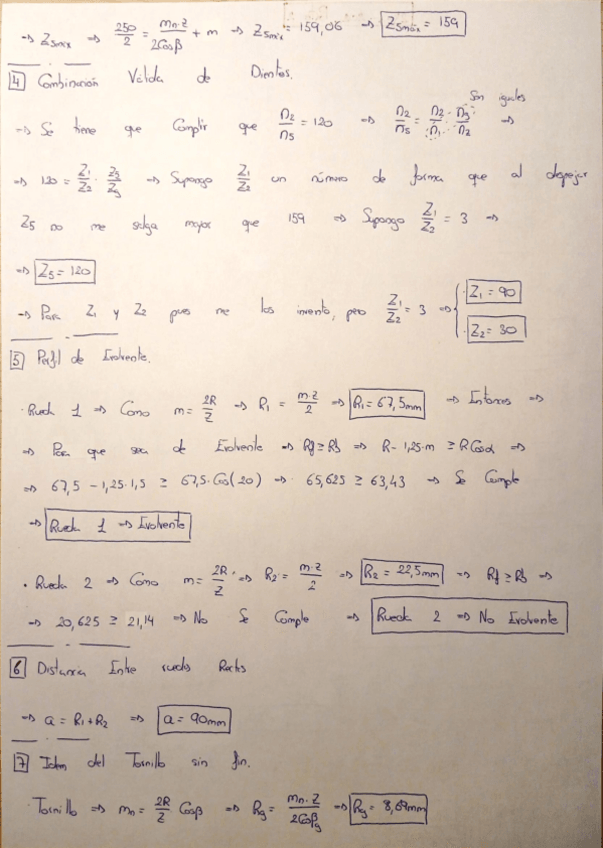 ⇒ Z5máx ⇒ 250/2 = mn·z/2Cosβ + m ⇒ Z5máx = 159,06 ⇒ Z5máx = 159
4 Combinación Válida de Dientes.
Son iguales
⇒ Se tiene que Cumplir que n2/n5 = 120 ⇒ n2/n5 = n2/n1 · n3/n2 ⇒
⇒ 120 = Z1/Z2 · Z5/Z3 ⇒ Supongo Z1/Z2 un número de forma que al despejar
Z5 no me salga mayor que 159 ⇒ Supongo Z1/Z2 = 3 ⇒
⇒ Z5 = 120
⇒ Para Z1 y Z2 pues me los invento, pero Z1/Z2 = 3 ⇒ { · Z1 = 90
· Z2 = 30
5 Perfil de Evolvente.
· Rueda 1 ⇒ Como m = 2R/Z ⇒ R1 = m·z/2 ⇒ R1 = 67,5mm ⇒ Entonces ⇒
⇒ Para que sea de Evolvente ⇒ Rf ≥ Rb ⇒ R - 1,25·m ≥ R Cosα ⇒
⇒ 67,5 - 1,25·1,5 ≥ 67,5·Cos(20) ⇒ 65,625 ≥ 63,43 ⇒ Se Cumple
⇒ Rueda 1 ⇒ Evolvente
· Rueda 2 ⇒ Como m = 2R/Z ⇒ R2 = m·z/2 ⇒ R2 = 22,5mm ⇒ Rf ≥ Rb ⇒
⇒ 20,625 ≥ 21,14 ⇒ No Se Cumple ⇒ Rueda 2 ⇒ No Evolvente
6 Distancia Entre ruedas Rectas
⇒ a = R1 + R2 ⇒ a = 90mm
7 Idem del Tornillo sin fin.
· Tornillo ⇒ mn = 2R/Z Cosβ ⇒ Rg = mn·Z/2Cosβg ⇒ Rg = 8,69mm